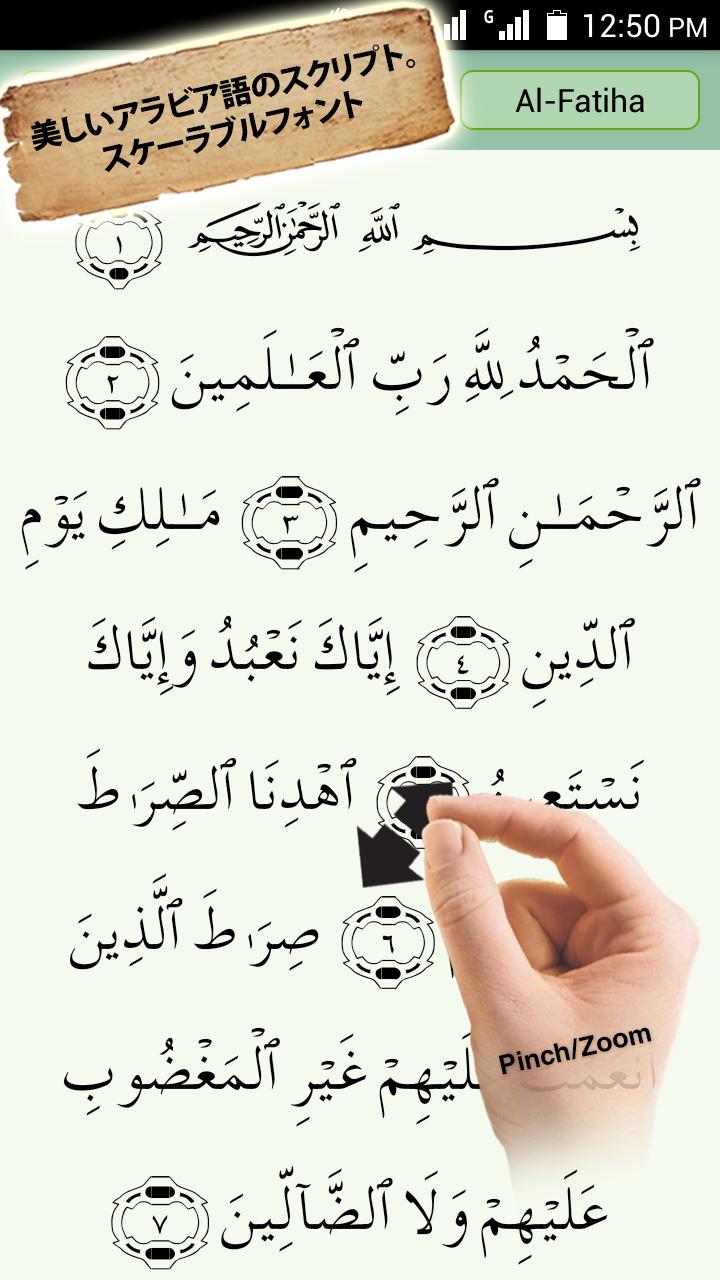 G 12:50 PM
美しいアラビア語のスクリプト。
スケーラブルフォント
Al-Fatiha
بِسْمِ ٱللَّهِ ٱلرَّحْمَٰنِ ٱلرَّحِيمِ ١
ٱلْحَمْدُ لِلَّهِ رَبِّ ٱلْعَـٰلَمِينَ ٢
ٱلرَّحْمَـٰنِ ٱلرَّحِيمِ ٣ مَـٰلِكِ يَوْمِ
ٱلدِّينِ ٤ إِيَّاكَ نَعْبُدُ وَإِيَّاكَ
نَسْتَعِينُ ٱهْدِنَا ٱلصِّرَٰطَ
٦ صِرَٰطَ ٱلَّذِينَ
أَنْعَمْتَ عَلَيْهِمْ غَيْرِ ٱلْمَغْضُوبِ
Pinch/Zoom
عَلَيْهِمْ وَلَا ٱلضَّآلِّينَ ٧